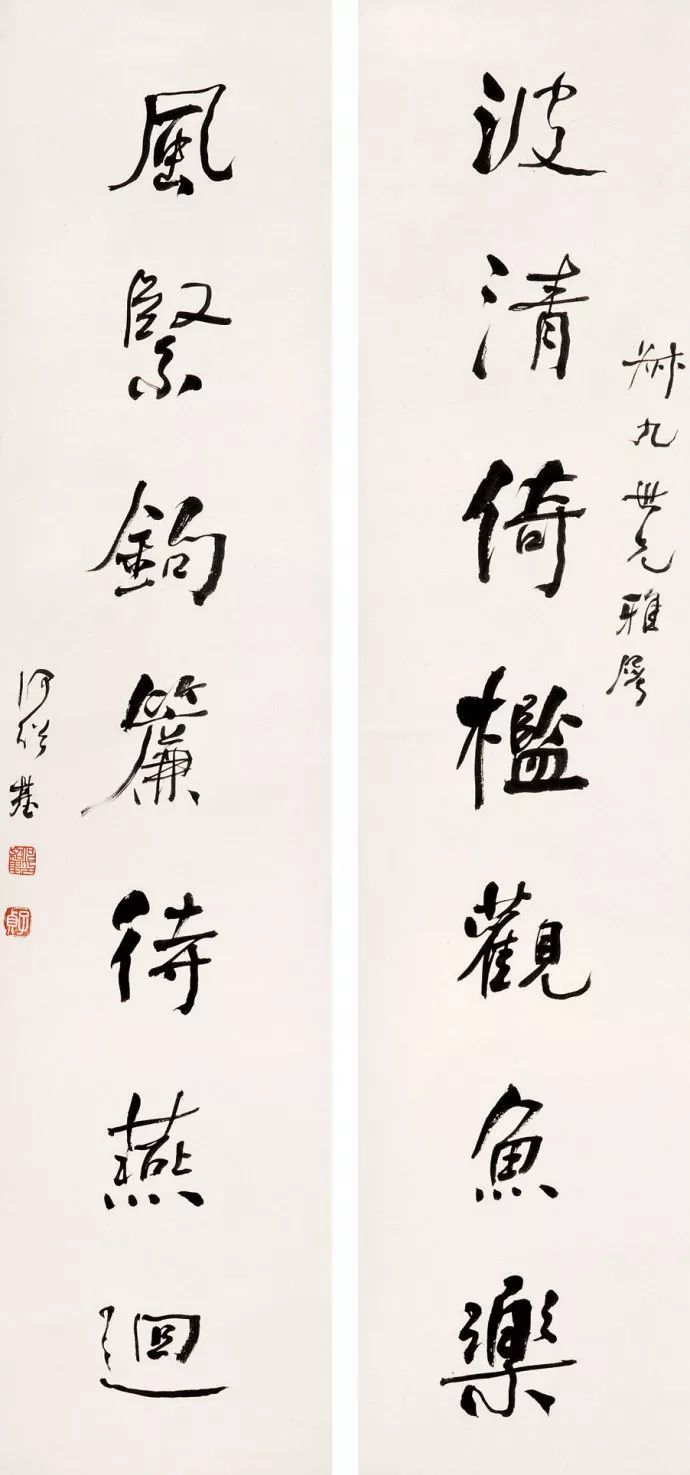 波清倚檻觀魚樂
九世兄雅屬
風緊鉤簾待燕迴
何紹基